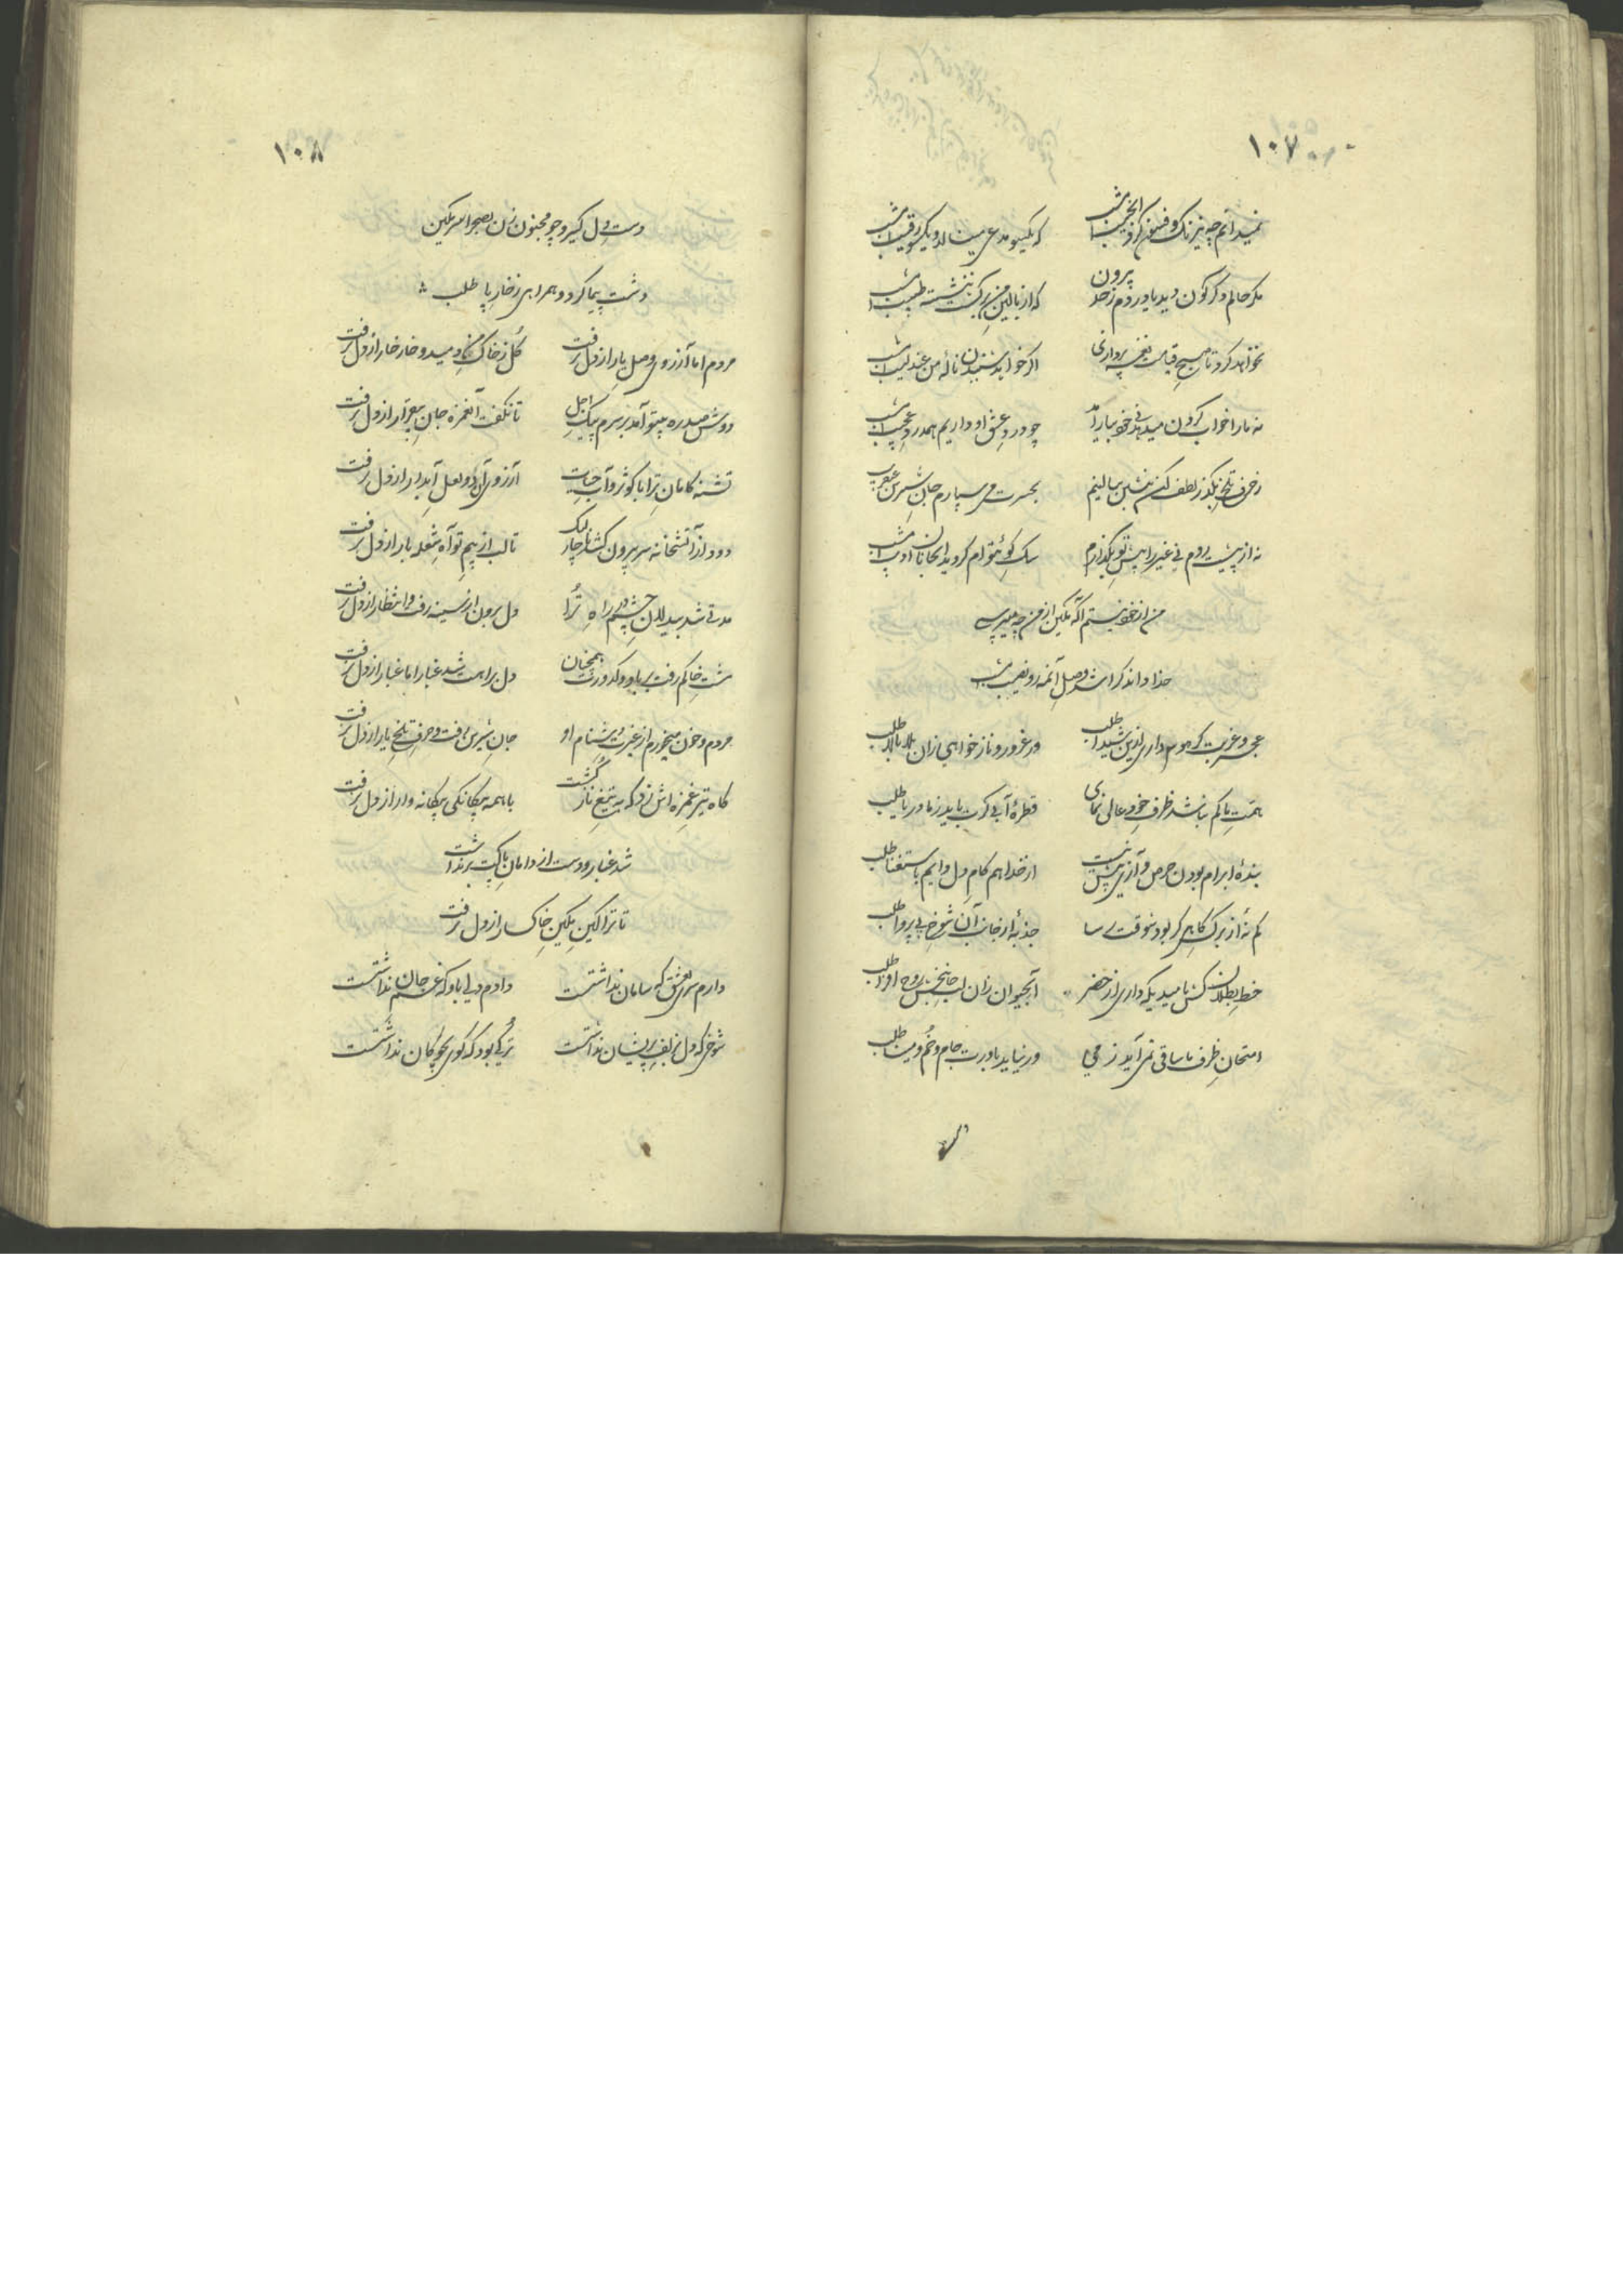 ۱۰۷
نمیدانم چه نیرنگ و فسون کرد امشب
که یکسو مدعی مینالد و یکسو رقیب امشب
مگر حالم دگرگون دید یا دردم ز حد بیرون
که از بالین من نشسته طبیب امشب
نخواهد کرد تا صبح قیامت نغمه پردازی
اگر خواهد شنیدن نالهٔ من عندلیب امشب
نه ما را خواب کردن میدهد نی خود بیارآمد
چو درد عشق او داریم همدرد عجیب امشب
ز حرف تلخ بگذر لطف کن بنشین ببالینم
بحسرت می سپارم جان شیرین
نه از پیشت روم نی غیر را پیش تو بگذارم
سگ کوی توام کردید امشب
من از خود نیستم آگه مکین از من چه میپرسی
خدا داند کرا شد وصل آنمه رو نصیب امشب
عجز و غربت گر هوس داری ازین شیدا طلب
ور غرور و ناز خواهی زان بلا بالا طلب
همت ما کم نباشد ظرف خود عالی نمای
قطرهٔ آبی گرت باید ز ما دریا طلب
بندهٔ ابرام بودن حرص و آزی بیش نیست
از خدا هم کام دل دایم باستغنا طلب
کم نهٔ از برگ کاهی گر بود وقت رسا
جذبهٔ از جانب آن شوخ بی پروا طلب
خط بطلان کش بامیدیکه داری از خضر
آبحیوان زان لب جانبخش روح افزا طلب
امتحان ظرف ما ساقی نمی آید ز می
ور نیاید باورت جام و خم و مینا طلب
۱۰۸
دست دل گیر و چو مجنون زن بصحرا سر مکین
دشت پیما گرد و همراهی ز خار پا طلب
مردم اما آرزوی وصل یار از دل نرفت
گل ز خاک من دمید و خار خار از دل نرفت
دوش صد ره بیتو آمد بر سرم پیک اجل
تا نگفت آنغمزه جان بیقرار از دل نرفت
تشنه کامان ترا با کوثر و آب حیات
آرزوی آن دو لعل آبدار از دل نرفت
دود از آتشخانه سر بیرون کشد ناچار لیک
تا لب از بیم تو آه شعله بار از دل نرفت
مدتی شد بیدلان چشم بر راه ترا
دل برون از سینه رفت و انتظار از دل نرفت
مشت خاکم رفت بر باد و کدورت همچنان
دل براهت شد غبار اما غبار از دل نرفت
مردم و خون میخورم از غیرت دشنام او
جان شیرین رفت و حرف تلخ یار از دل نرفت
گاه تیر غمزه اش زد گه به تیغ ناز کشت
با همه بیگانگی بیگانه وار از دل نرفت
شد غبار و دست از دامان پاکت برنداشت
تا ترا کین مکین خاکسار از دل نرفت
دارم سری بعشق که سامان نداشتست
دادم دلی باو که غم جان نداشتست
شوخی که دل بزلف پریشان نداشتست
ترکی بود که گوی بچوگان نداشتست